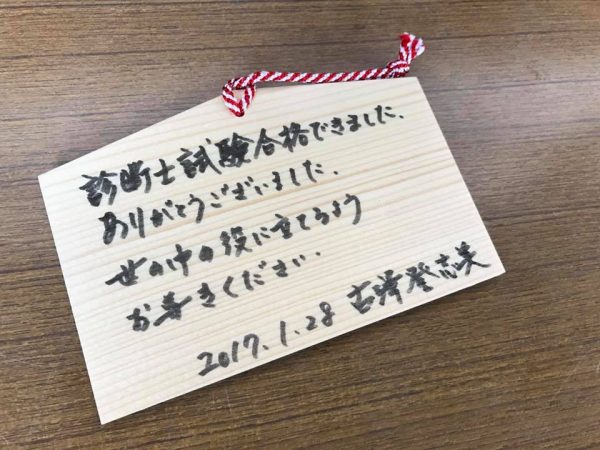 診断士試験合格できました。
ありがとうございました。
世の中の役に立てるよう
お導きください。
2017.1.28 古澤登志美